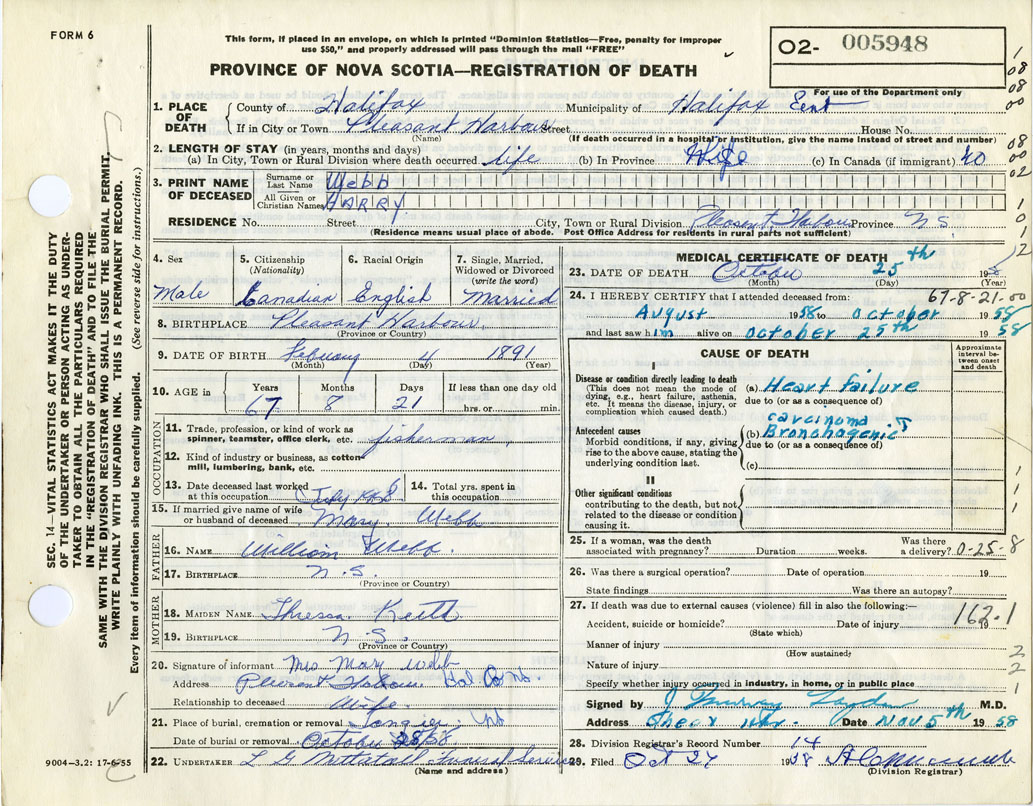 FORM 6
This form, if placed in an envelope, on which is printed "Dominion Statistics—Free, penalty for improper
use $50," and properly addressed will pass through the mail "FREE"
O2- 005948
For use of the Department only
PROVINCE OF NOVA SCOTIA—REGISTRATION OF DEATH
1. PLACE OF DEATH
County of Halifax Municipality of Halifax East
If in City or Town Pleasant Harbour Street House No.
(Name) (If death occurred in a hospital or institution, give the name instead of street and number)
2. LENGTH OF STAY (in years, months and days)
(a) In City, Town or Rural Division where death occurred life (b) In Province life (c) In Canada (if immigrant) 40
3. PRINT NAME OF DECEASED
Surname or Last Name Webb
All Given or Christian Names HARRY
RESIDENCE No. Street City, Town or Rural Division Pleasant Harbour Province N S.
(Residence means usual place of abode. Post Office Address for residents in rural parts not sufficient)
4. Sex Male
5. Citizenship (Nationality) Canadian
6. Racial Origin English
7. Single, Married, Widowed or Divorced (write the word) Married
8. BIRTHPLACE Pleasant Harbour.
(Province or Country)
9. DATE OF BIRTH Febuary 4 1891
(Month) (Day) (Year)
10. AGE in Years 67 Months 8 Days 21 If less than one day old hrs. or min.
OCCUPATION
11. Trade, profession, or kind of work as spinner, teamster, office clerk, etc. fisherman
12. Kind of industry or business, as cotton-mill, lumbering, bank, etc.
13. Date deceased last worked at this occupation July
14. Total yrs. spent in this occupation
15. If married give name of wife or husband of deceased Mary. Webb
FATHER
16. NAME William Webb.
17. BIRTHPLACE N.S.
(Province or Country)
MOTHER
18. MAIDEN NAME
19. BIRTHPLACE N.S.
(Province or Country)
20. Signature of informant Mrs Mary Webb
Address Pleasant Harbour Hal. Co N.S.
Relationship to deceased Wife.
21. Place of burial, cremation or removal Tangier. NS
Date of burial or removal October 28 58
22. UNDERTAKER Funeral Service
(Name and address)
MEDICAL CERTIFICATE OF DEATH
23. DATE OF DEATH October 25th 19
(Month) (Day) (Year)
24. I HEREBY CERTIFY that I attended deceased from: 67-8-21-00
August 1958 to October 1958
and last saw him alive on October 25th 1958
CAUSE OF DEATH
Approximate interval between onset and death
I
Disease or condition directly leading to death
(This does not mean the mode of dying, e.g., heart failure, asthenia, etc. It means the disease, injury, or complication which caused death.)
(a) Heart failure
due to (or as a consequence of)
Antecedent causes
Morbid conditions, if any, giving rise to the above cause, stating the underlying condition last.
carcinoma
(b) Bronchogenic
due to (or as a consequence of)
(c)
II
Other significant conditions
contributing to the death, but not related to the disease or condition causing it.
25. If a woman, was the death associated with pregnancy? Duration weeks. Was there a delivery? 0-25-8
26. Was there a surgical operation? Date of operation 19
State findings Was there an autopsy?
27. If death was due to external causes (violence) fill in also the following:—
162.1
Accident, suicide or homicide? Date of injury 19
(State which)
Manner of injury
(How sustained)
Nature of injury
Specify whether injury occurred in industry, in home, or in public place
Signed by J Murray M.D.
Address Sheet Hbr. Date Nov 5th 1958
28. Division Registrar's Record Number 14
29. Filed Oct 27 1958
(Division Registrar)
9004—3.2: 17-6-55
SEC. 14—VITAL STATISTICS ACT MAKES IT THE DUTY
OF THE UNDERTAKER OR PERSON ACTING AS UNDER-
TAKER TO OBTAIN ALL THE PARTICULARS REQUIRED
IN THE "REGISTRATION OF DEATH" AND TO FILE THE
SAME WITH THE DIVISION REGISTRAR WHO SHALL ISSUE THE BURIAL PERMIT.
WRITE PLAINLY WITH UNFADING INK. THIS IS A PERMANENT RECORD.
Every item of information should be carefully supplied. (See reverse side for instructions.)